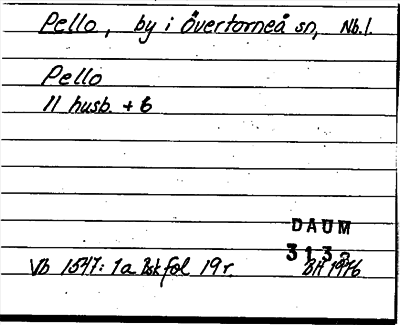 Pello, by i Övertorneå sn, Nb.l.
Pello
11 husb. + 6
DAUM
3132
Vb 1547: 1a Bsk fol 19 r.
BH 1976